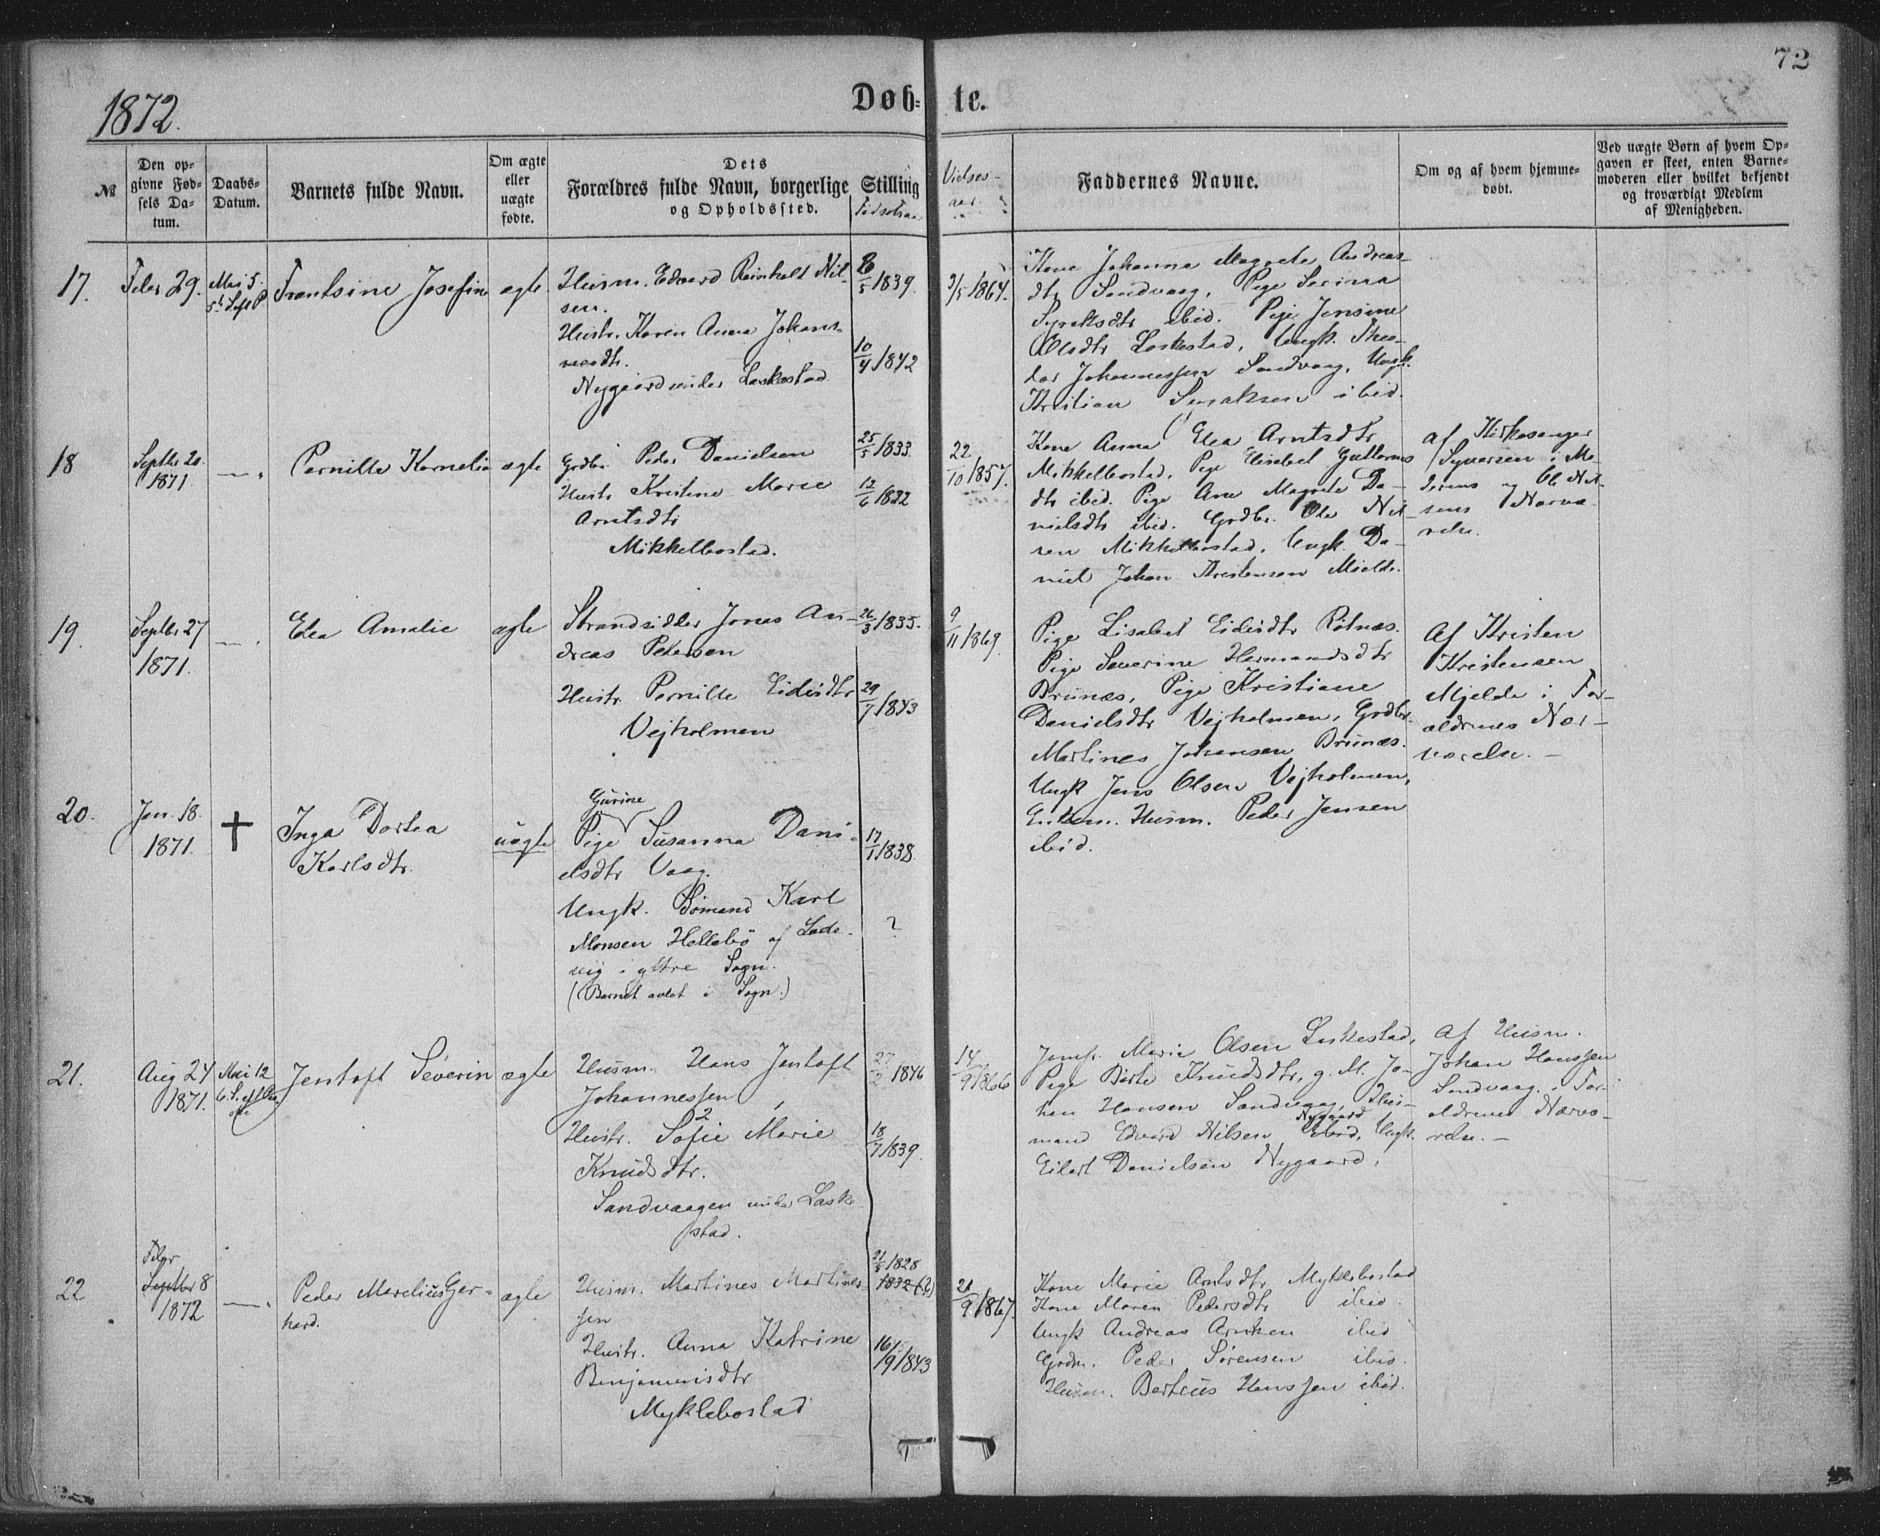 72
1872.
Døb- te.
№
Den opgivne Fødsels Datum.
Daabs-Datum.
Barnets fulde Navn.
Om ægte eller uægte fødte.
Dets Forældres fulde Navn, borgerlige Stilling og Opholdssted.
Fødselsaar
Vielsesaar.
Faddernes Navne.
Om og af hvem hjemmedøbt.
Ved uægte Børn af hvem Opgaven er skeet, enten Barnemoderen eller hvilket bekjendt og troværdigt Medlem af Menigheden.
17.
Febr 29.
Mai 5.
Frantsine Josefine
ægte
Husm. Edvard Reinholt Nil-
sen.
Hustr. Karen Anna Johans-
nesdtr.
Nygaard under Laskestad
/5 1839.
10/4 1842
3/5 1864.
Kone Johanna Magrete Andreas-
dtr Sandvaag, Pige Serina
dtr ibid. Pige Jensine
Olsdtr Laskestad, Ungk. Theo-
dor Johannessen Sandvaag, Ungk.
Kristian ibid.
18
Septbr 20.
1871
— .
Pernille Kornelia
ægte
Grdbr. Peder Danielsen
Hustr Kristine Marie
Arntsdtr
Mikkelbostad.
25/5 1833
12/6 1832
22/10 1857.
Kone Anna Elea Arntsdtr
Mikkelbostad, Pige Elisabet Guttorms
dtr ibid. Pige Ane Magrete Da-
nielsdtr ibid. Grdbr. Ole Nil-
sen Mikkelbostad, Ungk. Da-
niel Johan Kristensen Mjelde.
af Kirkesanger
Syversen i Mo-
derens og Ol. Nil-
sens Nærvæ-
relse.
19.
Septbr 27
1871.
— .
Elea Amalie
ægte
Strandsidder Jonas An-
dreas Petersen
Hustr Pernille Eidisdtr
Vejholmen
26/3 1835.
29/7 1843
9/11 1869.
Pige Lisabet Eidisdtr Rötnæs.
Pige Severine Hermandsdtr
Brunæs, Pige Kristiane
Danielsdtr Vejholmen, Grdbr.
Martines Johansen Brunæs.
Ungk Jens Olsen Vejholmen,
Enkem. Husm. Peder Jensen
ibid.
Af Kristen
Kristensen
Mjelde i For-
ældrenes Nær-
værelse. —
20.
Jan. 18.
1871.
✝
Inga Dortea
Karlsdtr.
uægte
Gurine
Pige Susanna Dani-
elsdtr Vaag.
Ungk. Sömand Karl
Monsen Hellebö af Lade-
vig i yttre Sogn.
(Barnet avlet i Sogn.)
17/1 1838
?
21.
Aug 24
1871.
Mai 12
Jentoft Severin
ægte
Husm. Hans Jentoft
Johannessen
Hustr. Sofie Marie
Knudsdtr.
Sandvaagen under Laske-
stad.
27/2 1846
18/7 1839.
14/9 1866
Jomfr. Marie Olsen Laskestad,
Pige Birte Knudsdtr, g. M. Jo-
han Hansen Sandvaag, Hus-
mand Edvard Nilsen Nygaard ibid, Ungk.
Eilert Danielsen Nygaard.
Af Husm.
Johan Hanssen
Sandvaag i For-
ældrenes Nærvæ-
relse. —
22
Febr
Septbr 8
1872
— .
Peder Marelius Ger-
hard.
ægte
Husm. Martines Martines-
sen
Hustr. Anna Katrine
Benjaminsdtr
Myklebostad
1828
1832 (?)
16/9 1843
/9 1867.
Kone Marie Arntsdtr Myklebostad
Kone Maren Pedersdtr ibid
Ungk Andreas Arntsen ibid
Grdm. Peder Sörensen ibid.
Husm. Berteus Hanssen ibid.